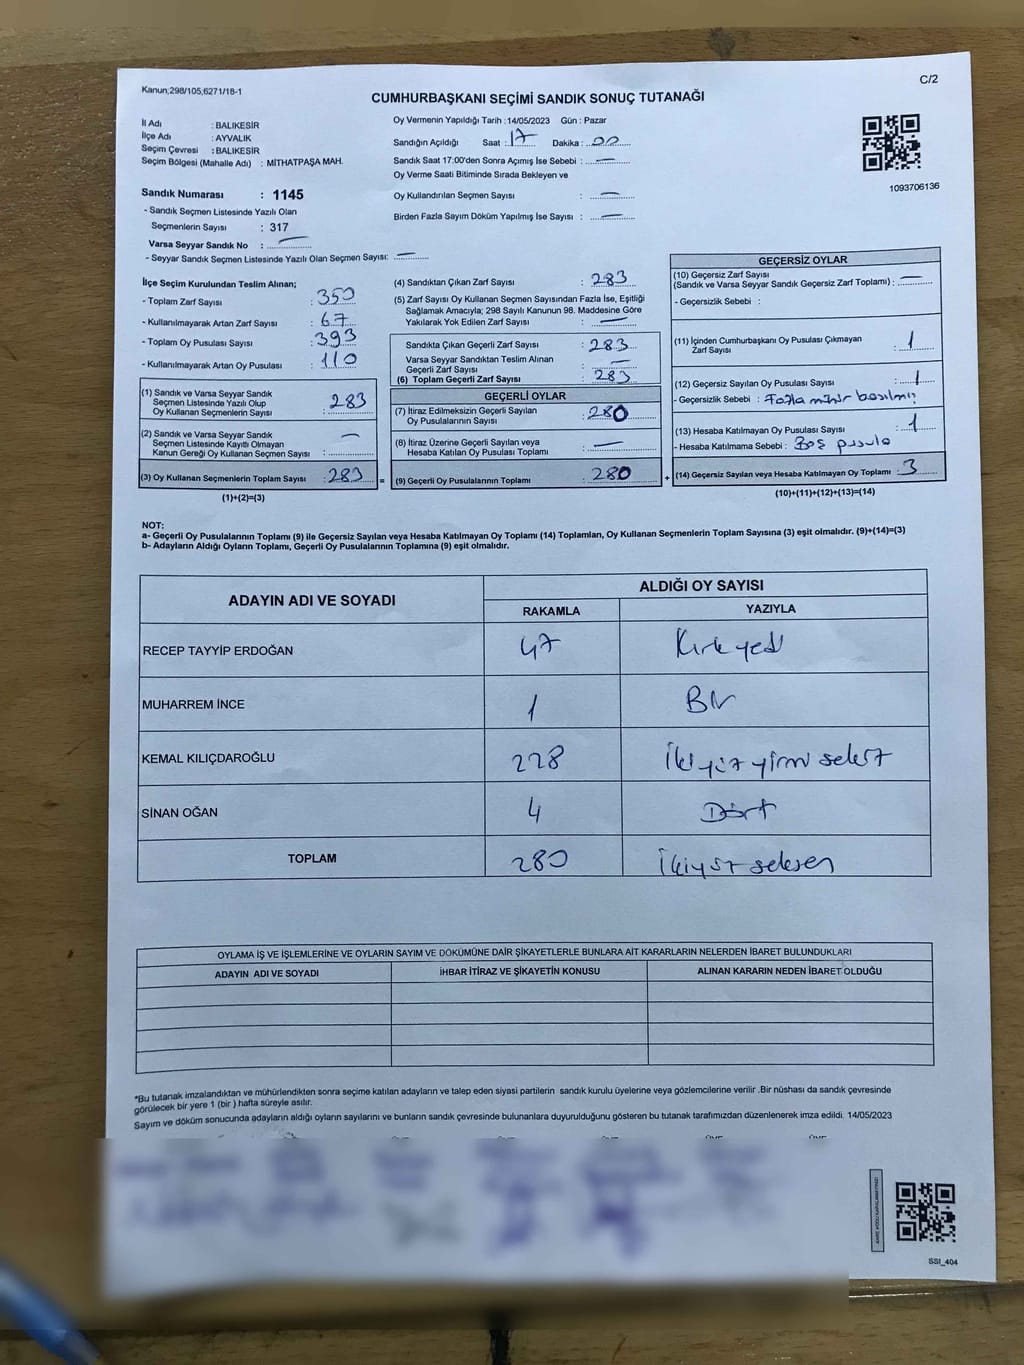 Kanun;298/105,6271/18-1
C/2
CUMHURBAŞKANI SEÇİMİ SANDIK SONUÇ TUTANAĞI
İl Adı : BALIKESİR
İlçe Adı : AYVALIK
Seçim Çevresi : BALIKESİR
Seçim Bölgesi (Mahalle Adı) : MİTHATPAŞA MAH.
Sandık Numarası : 1145
- Sandık Seçmen Listesinde Yazılı Olan
Seçmenlerin Sayısı : 317
Varsa Seyyar Sandık No : —
- Seyyar Sandık Seçmen Listesinde Yazılı Olan Seçmen Sayısı: —
Oy Vermenin Yapıldığı Tarih : 14/05/2023 Gün : Pazar
Sandığın Açıldığı Saat : 17 Dakika : 00
Sandık Saat 17:00'den Sonra Açımış İse Sebebi : —
Oy Verme Saati Bitiminde Sırada Bekleyen ve
Oy Kullandırılan Seçmen Sayısı : —
Birden Fazla Sayım Döküm Yapılmış İse Sayısı : —
1093706136
İlçe Seçim Kurulundan Teslim Alınan;
- Toplam Zarf Sayısı : 350
- Kullanılmayarak Artan Zarf Sayısı : 67
- Toplam Oy Pusulası Sayısı : 393
- Kullanılmayarak Artan Oy Pusulası : 110
(1) Sandık ve Varsa Seyyar Sandık
Seçmen Listesinde Yazılı Olup
Oy Kullanan Seçmenlerin Sayısı : 283
(2) Sandık ve Varsa Seyyar Sandık
Seçmen Listesinde Kayıtlı Olmayan
Kanun Gereği Oy Kullanan Seçmen Sayısı : —
(3) Oy Kullanan Seçmenlerin Toplam Sayısı : 283 =
(1)+(2)=(3)
(4) Sandıktan Çıkan Zarf Sayısı : 283
(5) Zarf Sayısı Oy Kullanan Seçmen Sayısından Fazla İse, Eşitliği
Sağlamak Amacıyla; 298 Sayılı Kanunun 98. Maddesine Göre
Yakılarak Yok Edilen Zarf Sayısı : —
Sandıkta Çıkan Geçerli Zarf Sayısı : 283
Varsa Seyyar Sandıktan Teslim Alınan
Geçerli Zarf Sayısı : —
(6) Toplam Geçerli Zarf Sayısı : 283
GEÇERLİ OYLAR
(7) İtiraz Edilmeksizin Geçerli Sayılan
Oy Pusulalarının Sayısı : 280
(8) İtiraz Üzerine Geçerli Sayılan veya
Hesaba Katılan Oy Pusulası Toplamı : —
(9) Geçerli Oy Pusulalarının Toplamı : 280 +
GEÇERSİZ OYLAR
(10) Geçersiz Zarf Sayısı
(Sandık ve Varsa Seyyar Sandık Geçersiz Zarf Toplamı) : —
- Geçersizlik Sebebi :
(11) İçinden Cumhurbaşkanı Oy Pusulası Çıkmayan
Zarf Sayısı : 1
(12) Geçersiz Sayılan Oy Pusulası Sayısı : 1
- Geçersizlik Sebebi : Fazla mühür basılmış
(13) Hesaba Katılmayan Oy Pusulası Sayısı : 1
- Hesaba Katılmama Sebebi : Boş pusula
(14) Geçersiz Sayılan veya Hesaba Katılmayan Oy Toplamı : 3
(10)+(11)+(12)+(13)=(14)
NOT:
a- Geçerli Oy Pusulalarının Toplamı (9) ile Geçersiz Sayılan veya Hesaba Katılmayan Oy Toplamı (14) Toplamları, Oy Kullanan Seçmenlerin Toplam Sayısına (3) eşit olmalıdır. (9)+(14)=(3)
b- Adayların Aldığı Oyların Toplamı, Geçerli Oy Pusulalarının Toplamına (9) eşit olmalıdır.
ADAYIN ADI VE SOYADI ALDIĞI OY SAYISI
RAKAMLA YAZIYLA
RECEP TAYYİP ERDOĞAN 47 Kırkyedi
MUHARREM İNCE 1 Bir
KEMAL KILIÇDAROĞLU 228 İkiyüz yirmi sekiz
SİNAN OĞAN 4 Dört
TOPLAM 280 İkiyüz seksen
OYLAMA İŞ VE İŞLEMLERİNE VE OYLARIN SAYIM VE DÖKÜMÜNE DAİR ŞİKAYETLERLE BUNLARA AİT KARARLARIN NELERDEN İBARET BULUNDUKLARI
ADAYIN ADI VE SOYADI İHBAR İTİRAZ VE ŞİKAYETİN KONUSU ALINAN KARARIN NEDEN İBARET OLDUĞU
*Bu tutanak imzalandıktan ve mühürlendikten sonra seçime katılan adayların ve talep eden siyasi partilerin sandık kurulu üyelerine veya gözlemcilerine verilir .Bir nüshası da sandık çevresinde
görülecek bir yere 1 (bir ) hafta süreyle asılır.
Sayım ve döküm sonucunda adayların aldığı oyların sayılarını ve bunların sandık çevresinde bulunanlara duyurulduğunu gösteren bu tutanak tarafımızdan düzenlenerek imza edildi. 14/05/2023
SSI_404